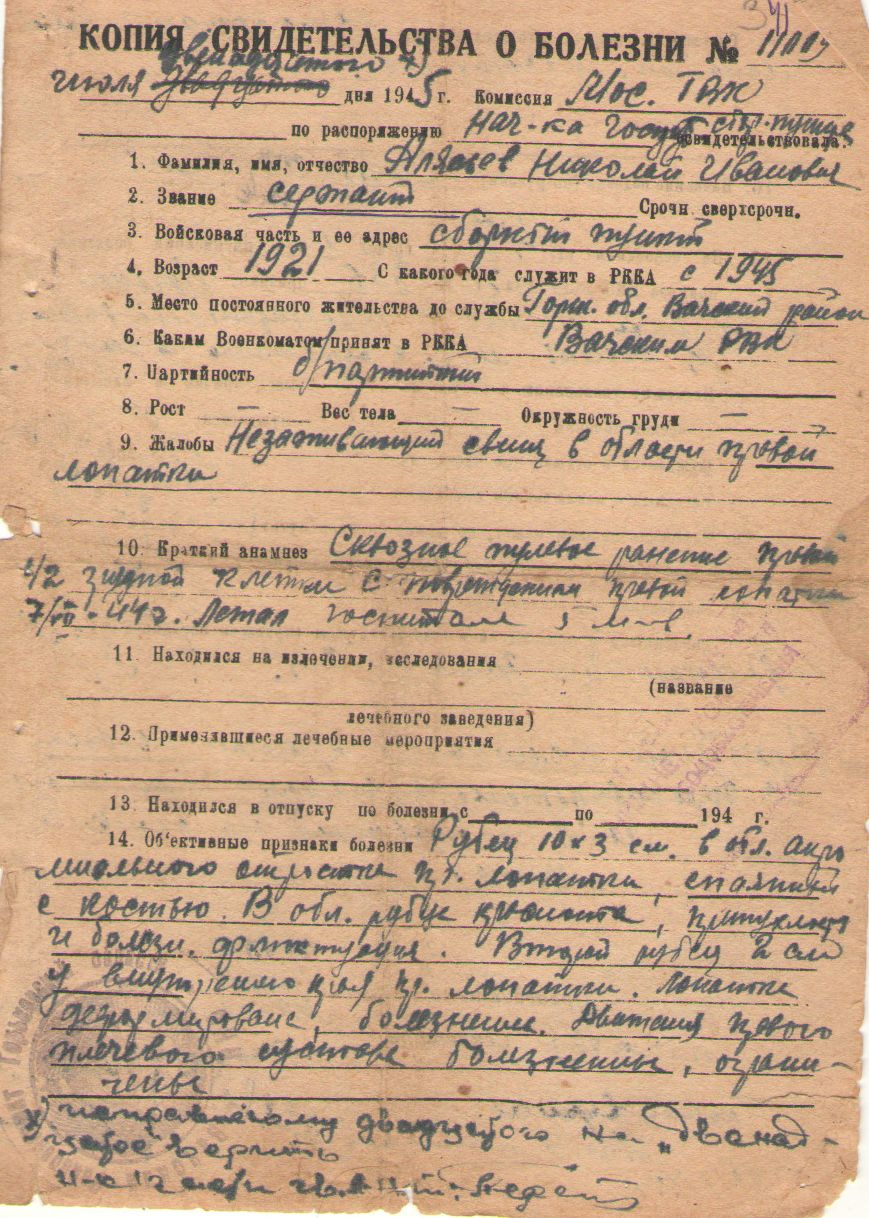 КОПИЯ СВИДЕТЕЛЬСТВА О БОЛЕЗНИ №
июля двадцатого дня 1945 г. Комиссия Мос. ГВК
по распоряжению Нач-ка свидетельствовала:
1. Фамилия, имя, отчество Николай Иванович
2. Звание сержант Срочн. сверхсрочн.
3. Войсковая часть и ее адрес сборный пункт
4. Возраст 1921 С какого года служит в РККА с 1945
5. Место постоянного жительства до службы Горьк. обл. Вачский район
6. Каким Военкоматом принят в РККА Вачским РВК
7. Партийность б/партийный
8. Рост — Вес тела — Окружность груди —
9. Жалобы Незаживающий свищ в области правой
лопатки
10. Краткий анамнез Сквозное пулевое ранение правой
1/2 грудной клетки с повреждением правой лопатки
7/VII-44г. Лежал госпитале 5 м-в.
11. Находился на излечении, исследовании
(название
лечебного заведения)
12. Применявшиеся лечебные мероприятия
13. Находился в отпуску по болезни с по 194 г.
14. Об'ективные признаки болезни Рубец 10×3 см. в обл. акро
миального отростка пр. лопатки, спаянный
с костью. В обл. рубца краснота, припухлость
и болезн. флюктуация. Второй рубец 2 см
у внутреннего края пр. лопатки. Лопатка
деформирована, болезненна. Движения правого
плечевого сустава болезненны, ограни-
чены
х) исправленному двадцатого на „двенад-
цатое" верить